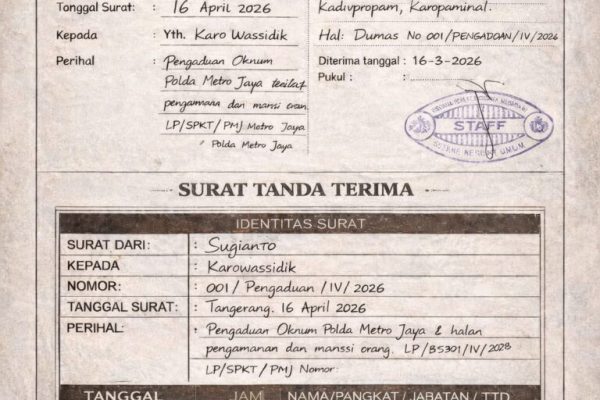 Tanggal Surat: 16 April 2026
Kepada : Yth. Karo Wassidik
Perihal : Pengaduan Oknum
Polda Metro Jaya
pengamana dan manssi oran.
LP/SPKT/PMJ Metro Jaya
Polda Metro Jaya
Kadivpropam, Karopaminal.
Hal: Dumas No 001/PENGADOAN/IV/2026
Diterima tanggal : 16-3-2026
Pukul :
STAFF
UMUM
SURAT TANDA TERIMA
IDENTITAS SURAT
SURAT DARI: : Sugianto
KEPADA : Karowassidik
NOMOR: : 001/Pengaduan/IV/2026
TANGGAL SURAT: : Tangerang. 16 April 2026
PERIHAL: : Pengaduan Oknum Polda Metro Jaya & halan
pengamanan dan manssi orang. LP/B5301/IV/2028
LP/SPKT/PMJ Nomor:
TANGGAL JAM NAMA/PANGKAT/JABATAN/TTD